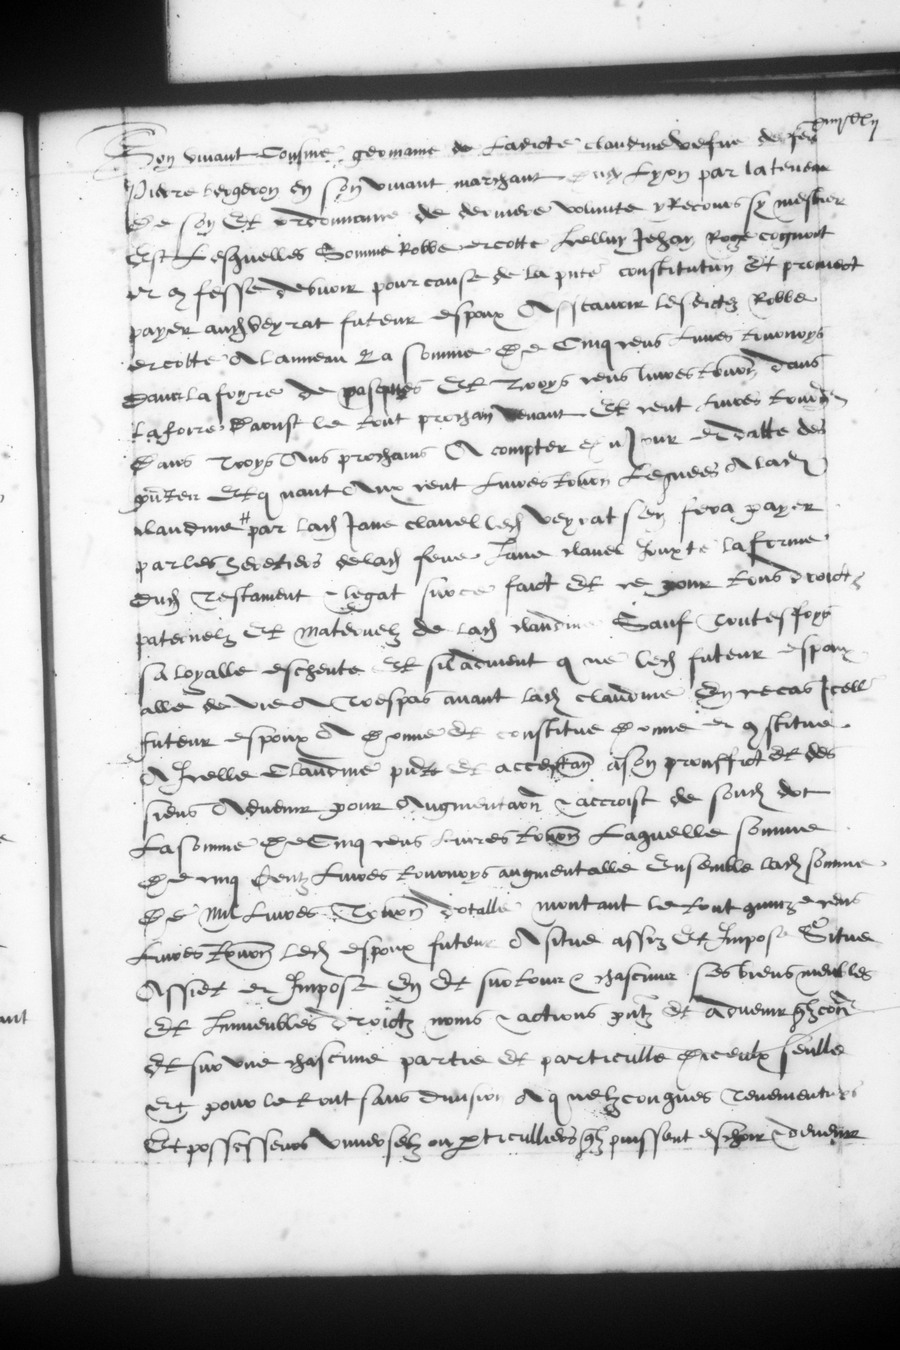 Son vivant Cousine germaine de Ladicte claudine vefve de feu
Pierre bergeron en son vivant marchant dudt Lyon par la teneur
de son dt ordonnance de derniere volunte y Recours sy mestier
est Lesquelles Somme Robbe et cotte Icelluy Jehan Roge cognoit
et confesse debvoir pour cause de la pnte constitution Et promect
payer audt veyrat futeur espoux Assavoir lesdictes Robbe
et cotte A lanneau La somme de Cinq cens livres tournoys
dans la foyre de pasques Et Troys cens livres tourn dans
la foire daoust le tout prochain venant Et cent livres tourn
dans Troys Ans prochains A compter du Jour et datte des
pntes Et quant Aux cent Livres tourn Leguees A ladt
claudine par ladt Jane clavel ledt veyrat sen fera payer
par les heretiers de ladt feue Jane clavel Jouxte la forme
dudt Testament & legat sus ce faict Et ce pour tous droictz
paternelz Et maternelz de ladt claudine Sauf Toutesfoys
sa loyalle escheute Et sil advient que ledt futeur espoux
alle de vie A Trespas avant ladt claudine En ce cas Icell
futeur espoux A donne Et constitue donne et constitue
A Icelle Claudine pnte Et acceptant a son prouffict Et des
siens Advenir pour Augmentaon & accroist de sondt dot
La somme de Cinq cens livres tourn Laquelle somme
de cinq Centz Livres tournoys augmentalle Ensemble ladt somme
de Mil Livres Tourn dotalle montant le tout quinze cens
Livres tourn ledt espoux futeur A situe assiz Et Impose Situe
Assiet et Impose En Et sur tous & chascuns ses biens meubles
Et Immeubles droictz noms & actions pntz Et advenir qlzconqs
Et sur une chascune partie Et particulle diceulx seulle
Et pour le tout sans division A quelzconques Tenementiers
Et possesseurs universelz ou particulliers qlz puissent eschoir & devenir